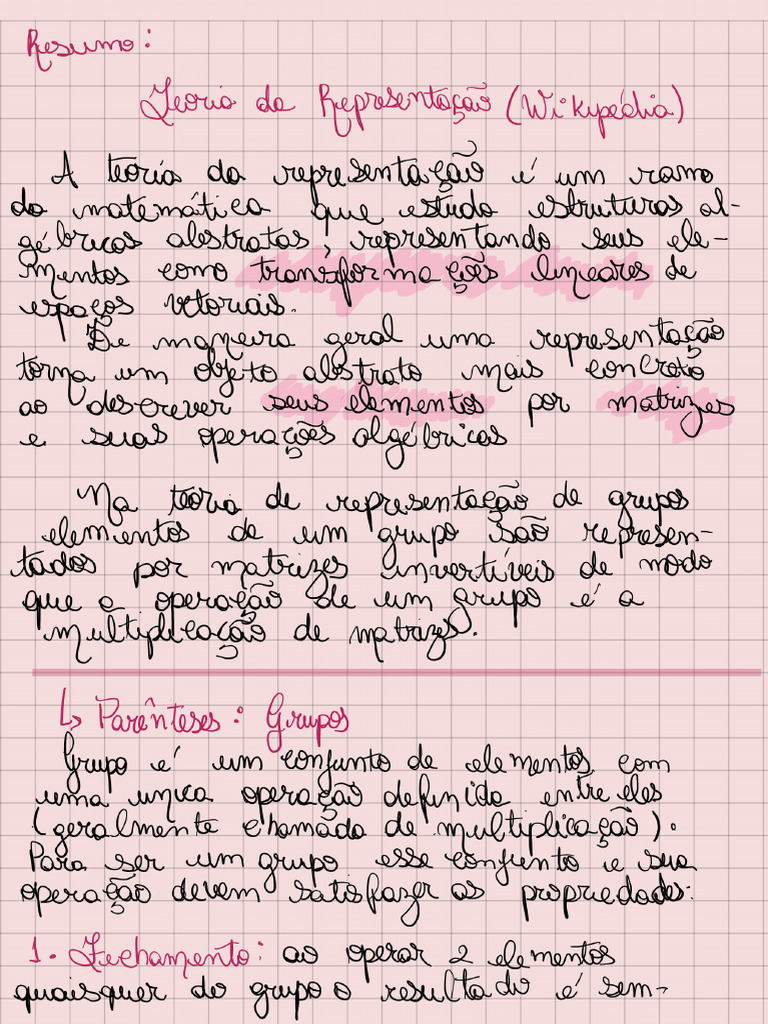 Resumo:
Teoria da Representação (Wikipédia)
A teoria da representação é um ramo
da matemática que estuda estruturas al-
gébricas abstratas, representando seus ele-
mentos como transformações lineares de
espaços vetoriais.
De maneira geral uma representação
torna um objeto abstrato mais concreto
ao descrever seus elementos por matrizes
e suas operações algébricas
Na teoria de representação de grupos
elementos de um grupo são represen-
tados por matrizes invertíveis de modo
que a operação de um grupo é a
multiplicação de matrizes.
↳ Parênteses: Grupos
Grupo é um conjunto de elementos com
uma unica operação definida entre eles
(geralmente chamada de multiplicação).
Para ser um grupo esse conjunto e sua
operação devem satisfazer as propriedades:
1. Fechamento: ao operar 2 elementos
quaisquer do grupo o resultado é sem-